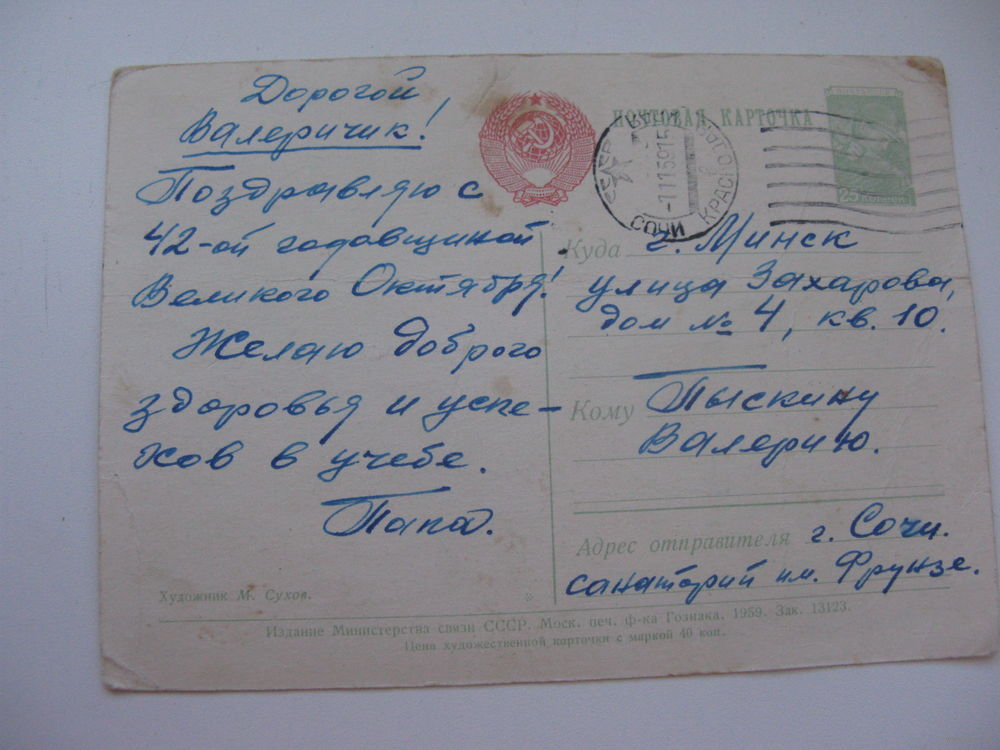 Дорогой
Валеричик!
Поздравляю с
42-ой годовщиной
Великого Октября!
Желаю доброго
здоровья и успе-
хов в учебе.
Папа.
Художник М. Сухов.
ПОЧТОВАЯ КАРТОЧКА
СОЧИ
КРАСНО
25 КОПЕЕК
Куда г. Минск
улица Захарова,
дом № 4, кв. 10.
Кому Пыскину
Валерию.
Адрес отправителя г. Сочи.
санаторий им. Фрунзе.
Издание Министерства связи СССР. Моск. печ. ф-ка Гознака, 1959. Зак. 13123.
Цена художественной карточки с маркой 40 коп.